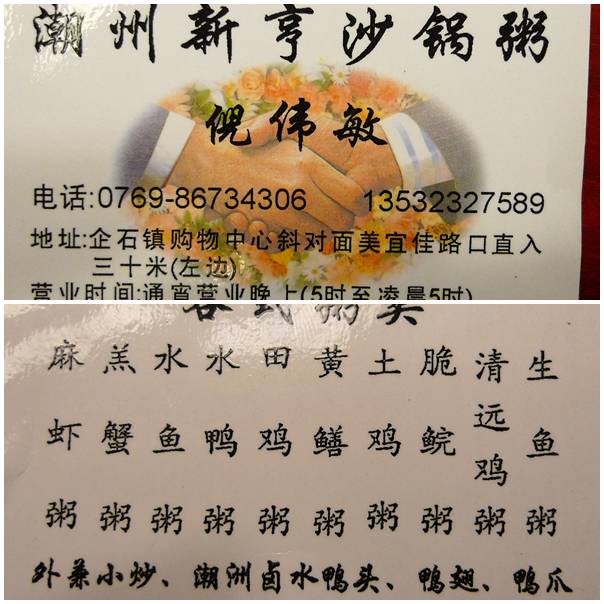 潮州新亨沙锅粥
倪伟敏
电话:0769-86734306 13532327589
地址:企石镇购物中心斜对面美宜佳路口直入
三十米(左边)
营业时间:通宵营业晚上(5时至凌晨5时)
各式粥类
麻虾粥 羔蟹粥 水鱼粥 水鸭粥 田鸡粥 黄鳝粥 土鸡粥 脆鲩粥 清远鸡粥 生鱼粥
外兼小炒、潮洲卤水鸭头、鸭翅、鸭爪